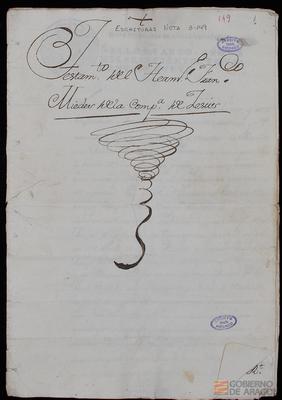 ESCRITURAS NOTA 3-149
149
1
Testam.to del Herm.o Fran.co
Miedes de la Comp.a de Jesus
GOBIERNO
DE ARAGON